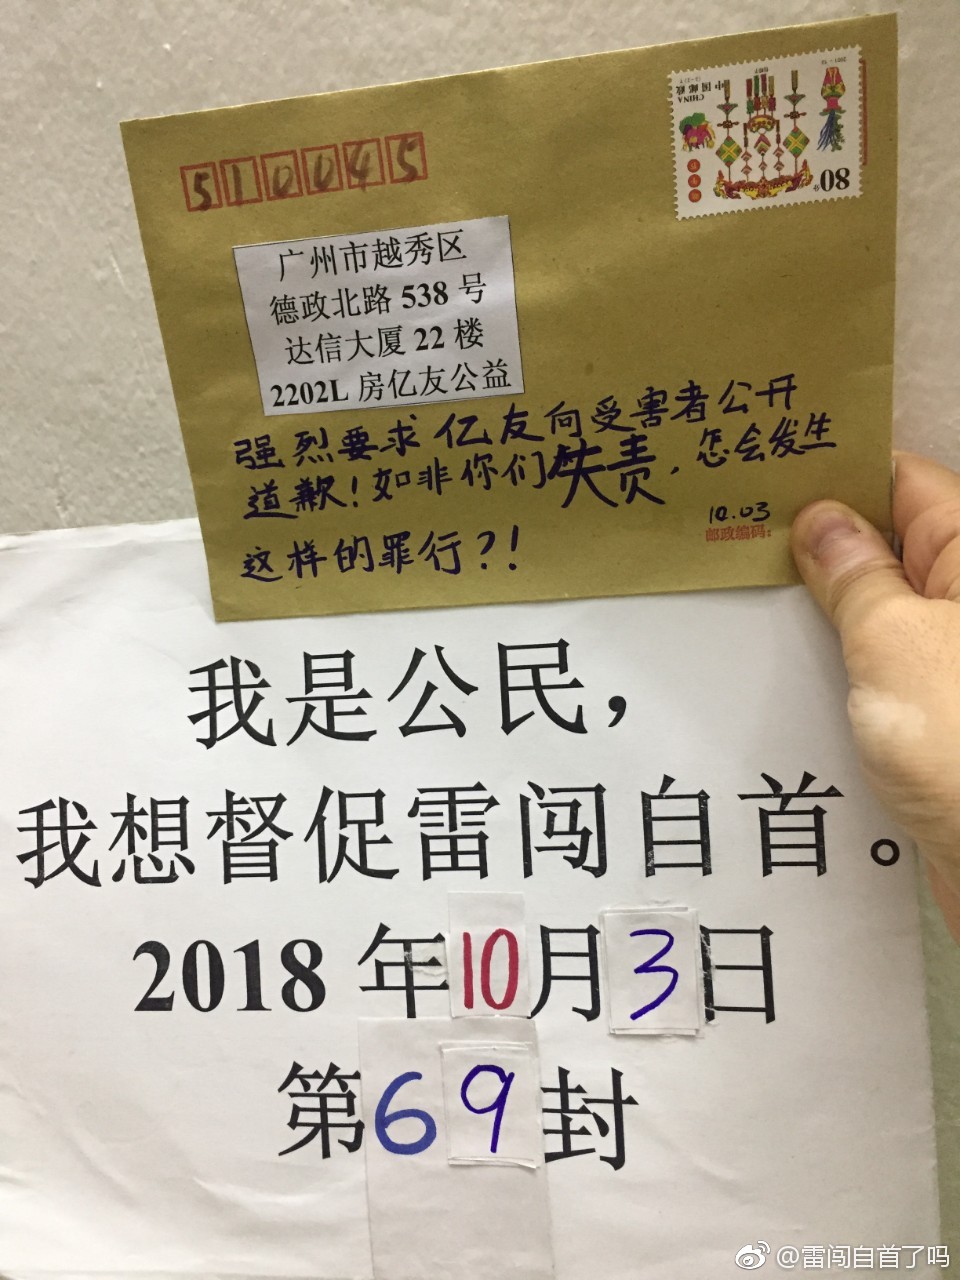 510045
中国邮政
CHINA
80分
广州市越秀区
德政北路 538 号
达信大厦 22 楼
2202L 房亿友公益
强烈要求亿友向受害者公开
道歉!如非你们失责,怎会发生
这样的罪行?!
10.03
邮政编码:
我是公民,
我想督促雷闯自首。
2018 年10月3日
第69封
@雷闯自首了吗